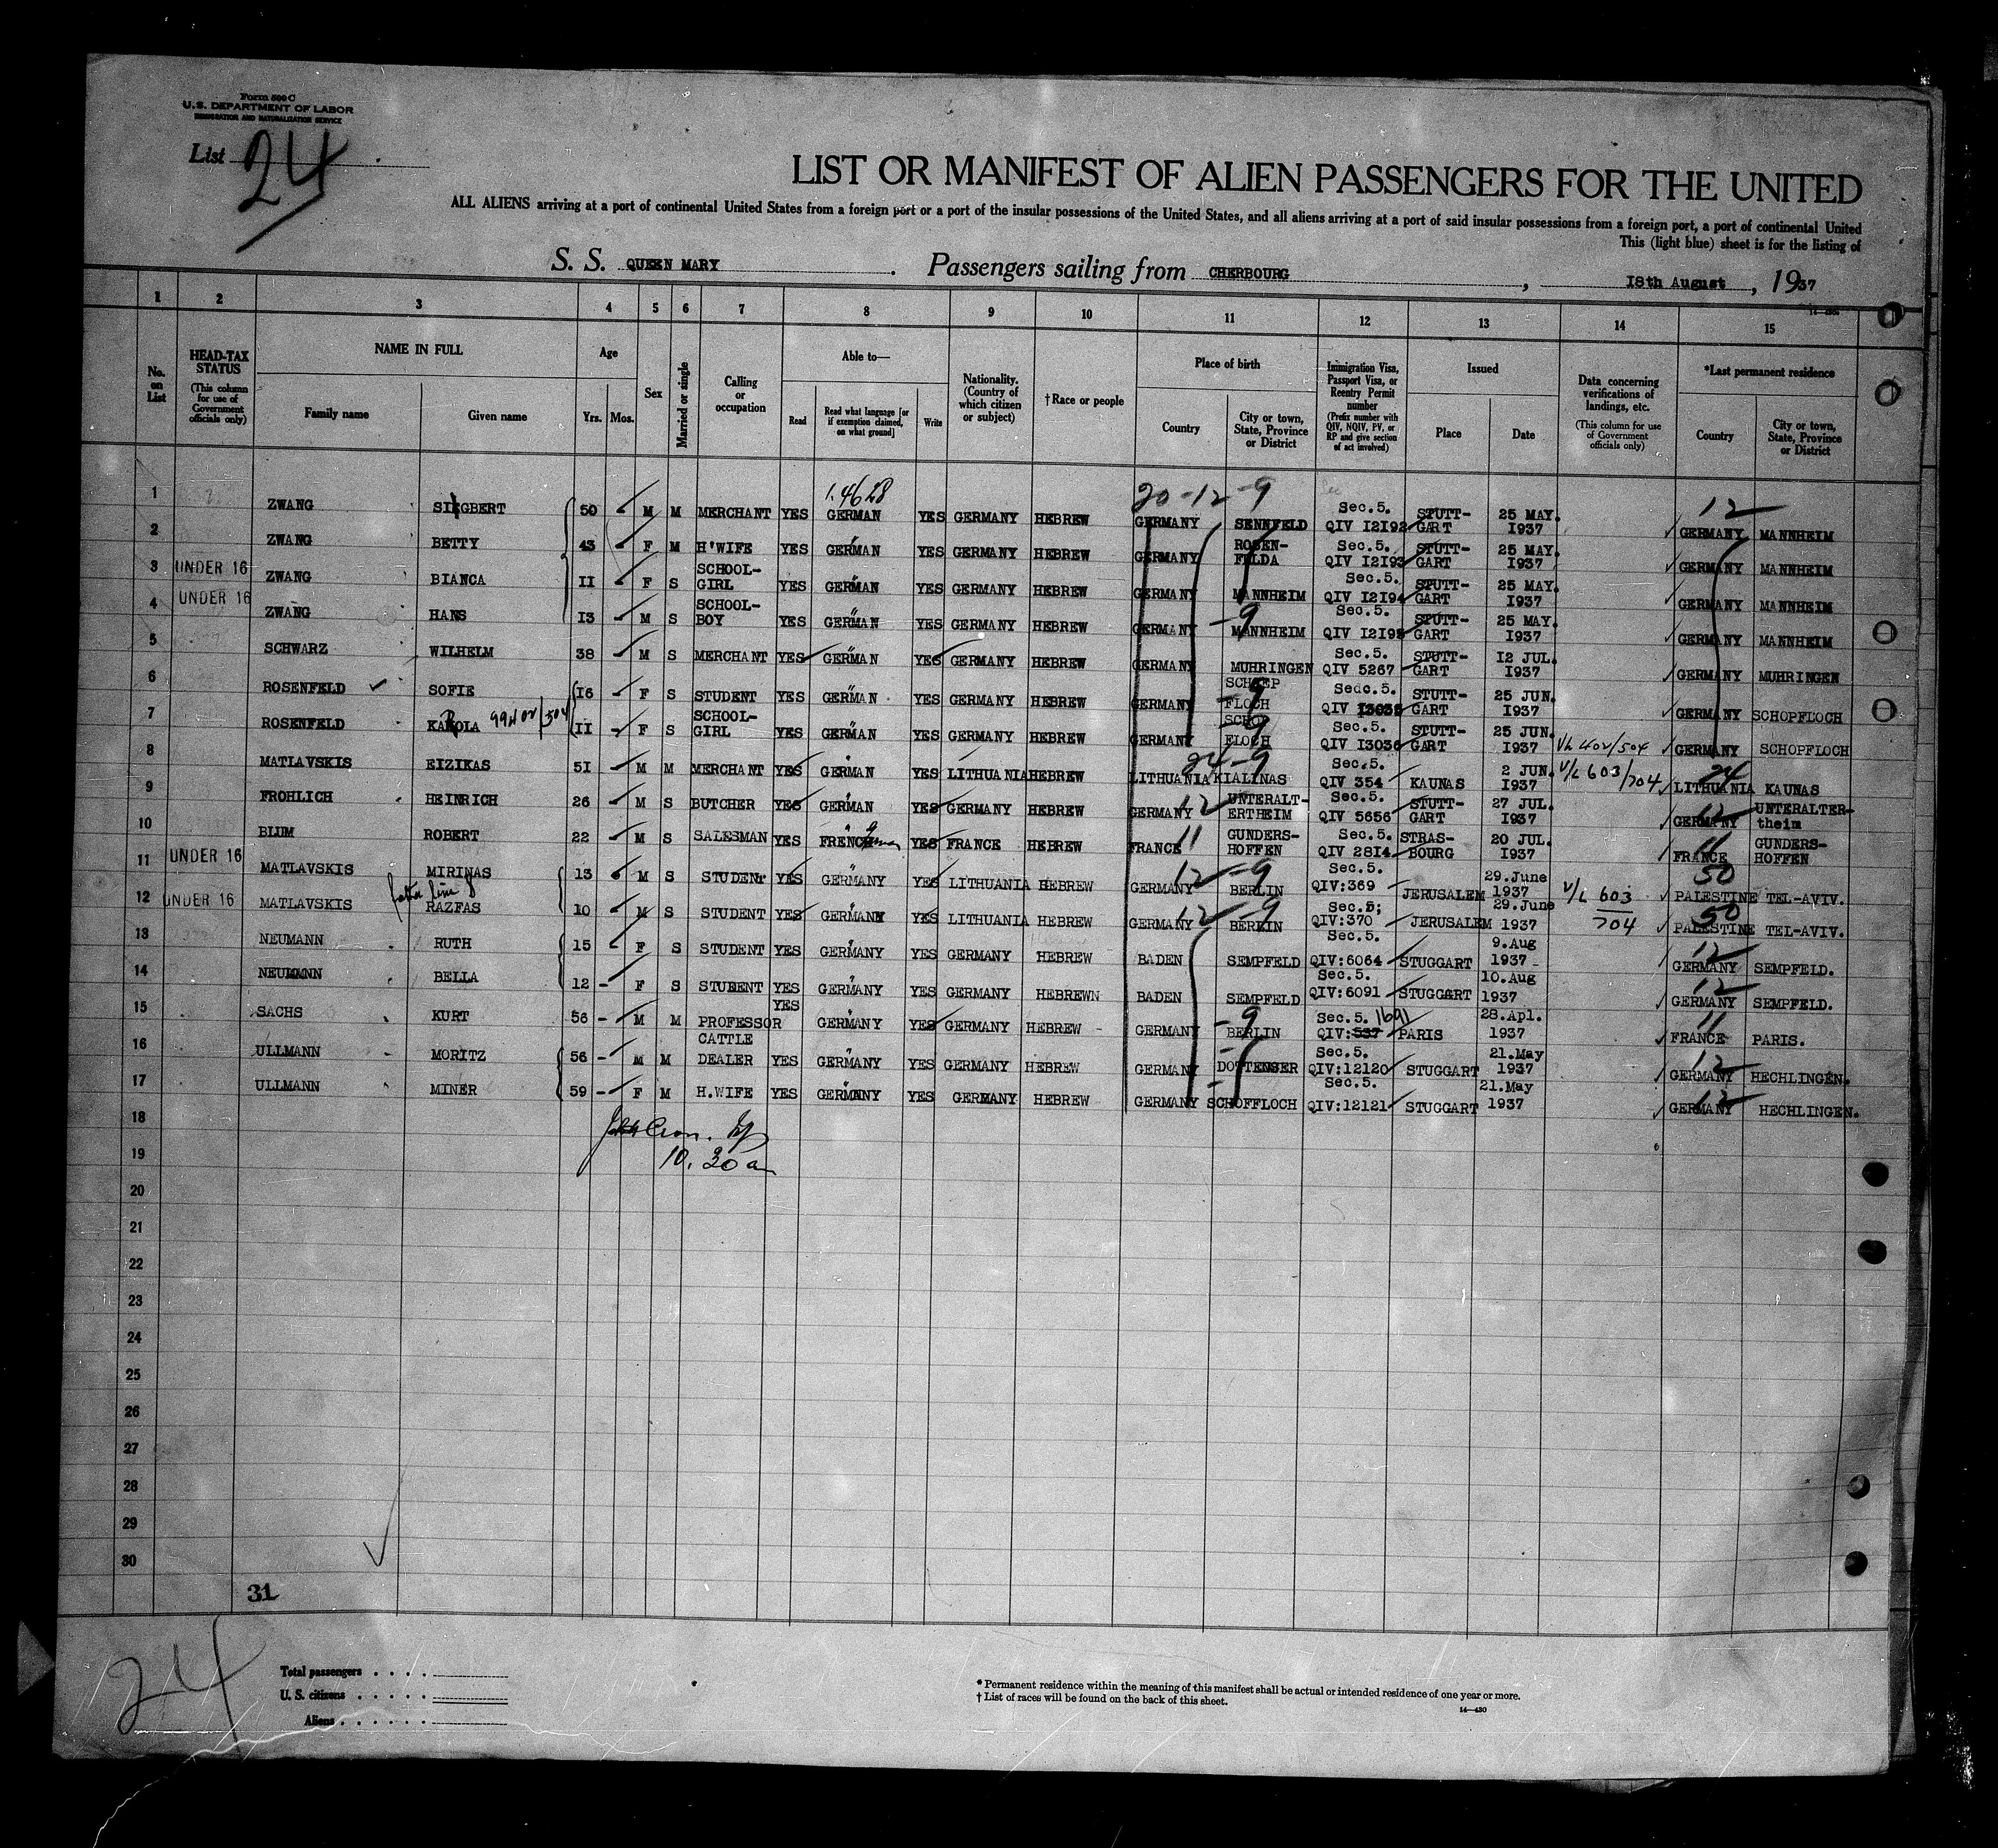 Form 500 C
U.S. DEPARTMENT OF LABOR
IMMIGRATION AND NATURALIZATION SERVICE
List 24
LIST OR MANIFEST OF ALIEN PASSENGERS FOR THE UNITED
ALL ALIENS arriving at a port of continental United States from a foreign port or a port of the insular possessions of the United States, and all aliens arriving at a port of said insular possessions from a foreign port, a port of continental United
This (light blue) sheet is for the listing of
S. S. QUEEN MARY . Passengers sailing from CHERBOURG , 18th August , 1937
1 2 3 4 5 6 7 8 9 10 11 12 13 14 15
No. on List
HEAD-TAX STATUS (This column for use of Government officials only)
NAME IN FULL Family name Given name
Age Yrs. Mos.
Sex
Married or single
Calling or occupation
Able to— Read Read what language [or if exemption claimed, on what ground] Write
Nationality. (Country of which citizen or subject)
†Race or people
Place of birth Country City or town, State, Province or District
Immigration Visa, Passport Visa, or Reentry Permit number (Prefix number with QIV, NQIV, PV, or RP and give section of act involved)
Issued Place Date
Data concerning verifications of landings, etc. (This column for use of Government officials only)
*Last permanent residence Country City or town, State, Province or District
1.4628 20-12-9 12
1 ZWANG SIEGBERT 50 M M MERCHANT YES GERMAN YES GERMANY HEBREW GERMANY SENNFELD Sec.5. QIV I2I92 STUTT-GART 25 MAY. I937 GERMANY MANNHEIM
2 ZWANG BETTY 43 F M H'WIFE YES GERMAN YES GERMANY HEBREW GERMANY ROSEN-FILDA Sec.5. QIV I2I93 STUTT-GART 25 MAY. I937 GERMANY MANNHEIM
3 UNDER 16 ZWANG BIANCA II F S SCHOOL-GIRL YES GERMAN YES GERMANY HEBREW GERMANY MANNHEIM Sec.5. QIV I2I94 STUTT-GART 25 MAY. I937 GERMANY MANNHEIM
4 UNDER 16 ZWANG HANS I3 M S SCHOOL-BOY YES GERMAN YES GERMANY HEBREW GERMANY -9 MANNHEIM Sec.5. QIV I2I95 STUTT-GART 25 MAY. I937 GERMANY MANNHEIM
5 SCHWARZ WILHELM 38 M S MERCHANT YES GERMAN YES GERMANY HEBREW GERMANY MUHRINGEN Sec.5. QIV 5267 STUTT-GART I2 JUL. I937 GERMANY MUHRINGEN
6 ROSENFELD SOFIE I6 F S STUDENT YES GERMAN YES GERMANY HEBREW GERMANY -9 FLOCH Sedc.5. QIV I3035 STUTT-GART 25 JUN. I937 GERMANY SCHOPFLOCH
7 ROSENFELD KAROLA II F S SCHOOL-GIRL YES GERMAN YES GERMANY HEBREW GERMANY -9 FLOCH Sec.5. QIV I3036 STUTT-GART 25 JUN. I937 V/L 402/504 GERMANY SCHOPFLOCH
8 MATLAVSKIS EIZIKAS 5I M M MERCHANT YES GERMAN YES LITHUANIA HEBREW LITHUANIA 24-9 KIALINAS Sec.5. QIV 354 KAUNAS 2 JUN. I937 V/L 603/704 24 LITHUANIA KAUNAS
9 FROHLICH HEINRICH 26 M S BUTCHER YES GERMAN YES GERMANY HEBREW GERMANY 12 UNTERALT-ERTHEIM Sec.5. QIV 5656 STUTT-GART 27 JUL. I937 12 GERMANY UNTERALTER-theim
10 BLUM ROBERT 22 M S SALESMAN YES FRENCH German YES FRANCE HEBREW FRANCE 11 GUNDERS-HOFFEN Sec.5. QIV 28I4 STRAS-BOURG 20 JUL. I937 11 FRANCE GUNDERS-HOFFEN
11 UNDER 16 MATLAVSKIS MIRINAS 13 M S STUDENT YES GERMANY YES LITHUANIA HEBREW GERMANY 12-9 BERLIN Sec.5. QIV:369 JERUSALEM 29.June 1937 V/L 603 50 PALESTINE TEL-AVIV.
father line 8
12 UNDER 16 MATLAVSKIS RAZFAS 10 M S STUDENT YES GERMANY YES LITHUANIA HEBREW GERMANY 12-9 BERLIN Sec.5; QIV:370 JERUSALEM 29.June 1937 704 50 PALESTINE TEL-AVIV.
13 NEUMANN RUTH 15 F S STUDENT YES GERMANY YES GERMANY HEBREW BADEN SEMPFELD Sec.5. QIV:6064 STUGGART 9.Aug 1937 12 GERMANY SEMPFELD.
14 NEUMANN BELLA 12 F S STUDENT YES GERMANY YES GERMANY HEBREWN BADEN SEMPFELD Sec.5. QIV:6091 STUGGART 10.Aug 1937 12 GERMANY SEMPFELD.
15 SACHS KURT 56 M M PROFESSOR YES GERMANY YES GERMANY HEBREW GERMANY -9 BERLIN Sec.5. 1691 QIV:537 PARIS 28.Apl. 1937 11 FRANCE PARIS.
16 ULLMANN MORITZ 56 M M CATTLE DEALER YES GERMANY YES GERMANY HEBREW GERMANY DOTTENSER Sec.5. QIV:12120 STUGGART 21.May 1937 12 GERMANY HECHLINGEN.
17 ULLMANN MINER 59 F M H.WIFE YES GERMANY YES GERMANY HEBREW GERMANY SCHOFFLOCH Sec.5. QIV:12121 STUGGART 21.May 1937 12 GERMANY HECHLINGEN.
18
10.30 am
19
20
21
22
23
24
25
26
27
28
29
30
31
24
Total passengers . . . .
U. S. citizens . . . . .
Aliens . . . . . .
* Permanent residence within the meaning of this manifest shall be actual or intended residence of one year or more.
† List of races will be found on the back of this sheet.
14—430